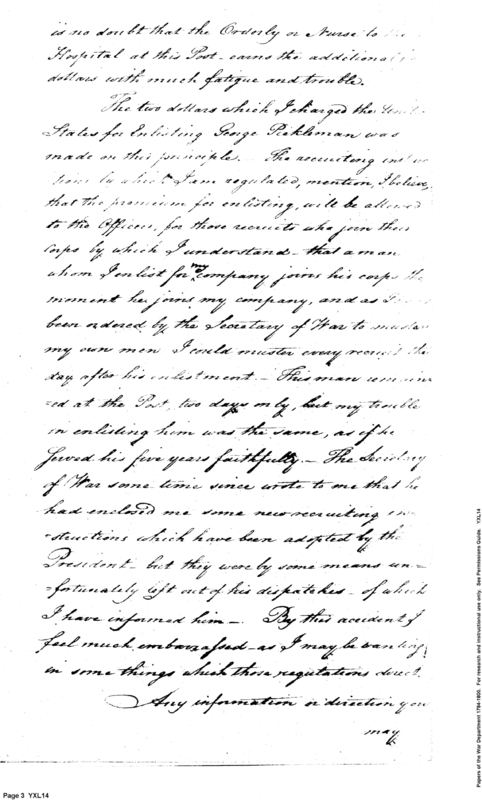 is no doubt that the Orderly or Nurse to
Hospital at this Post - earns the additional
dollars with much fatigue and trouble.
The two dollars which I charged the
States for Enlisting George was
made on this principle. - The recruiting
by which I am regulated, mention, I believe,
that the premium for enlisting, will be allowed
to the Officers, for those recruits who join their
Corps by which I understand - that a man
whom I enlist for my company joins his corps the
moment he joins my company, and as
been ordered by the Secretary of War to muster
my own men I could muster every recruit the
day after his enlistment - This man remain
=ed at the Post, two days only, but my trouble
in enlisting him was the same, as if he
served his five years faithfully - The Secretary
of War some time since wrote to me that he
had enclosed me some new recruiting in
=structions which have been adopted by the
President - but they were by some means un=
=fortunately left out of his dispatches - of which
I have informed him -. By this accident I
feel much embarassed - as I may be wanting
in some things which those regulations direct.
Any information or direction you
may
Page 3 YXL14
Papers of the War Department 1784-1800. For research and instructional use only. See Permissions Guide. YXL14